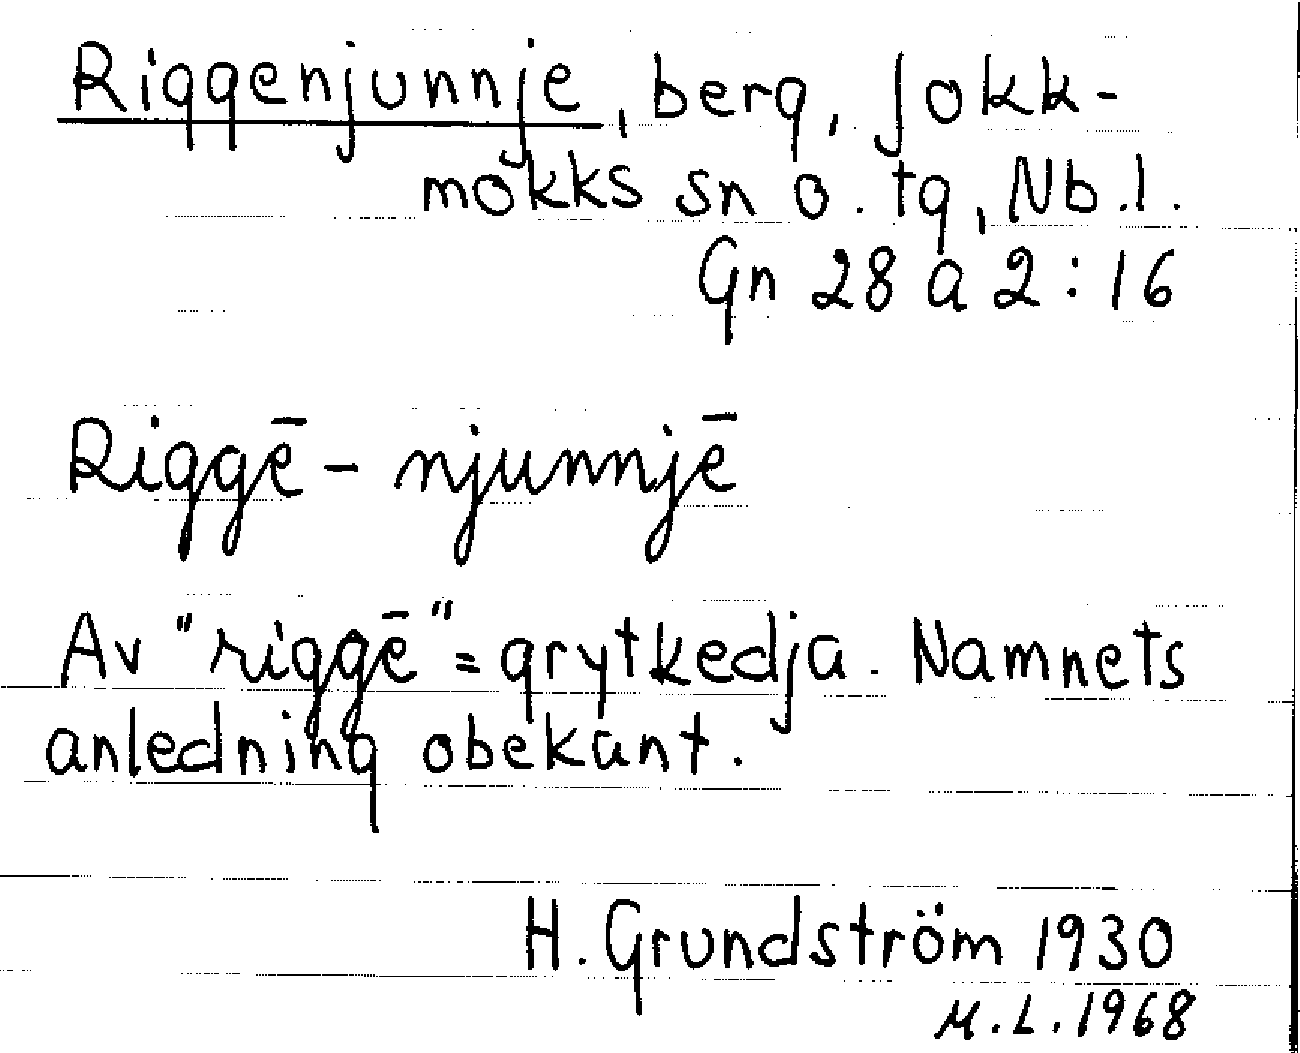 Riggenjunnje, berg, Jokk-
mokks sn o. tg, Nb.l.
Gn 28 a 2:16
Riggē - njunnjē
Av "riggē" = grytkedja. Namnets
anledning obekant.
H. Grundström 1930
M.L. 1968